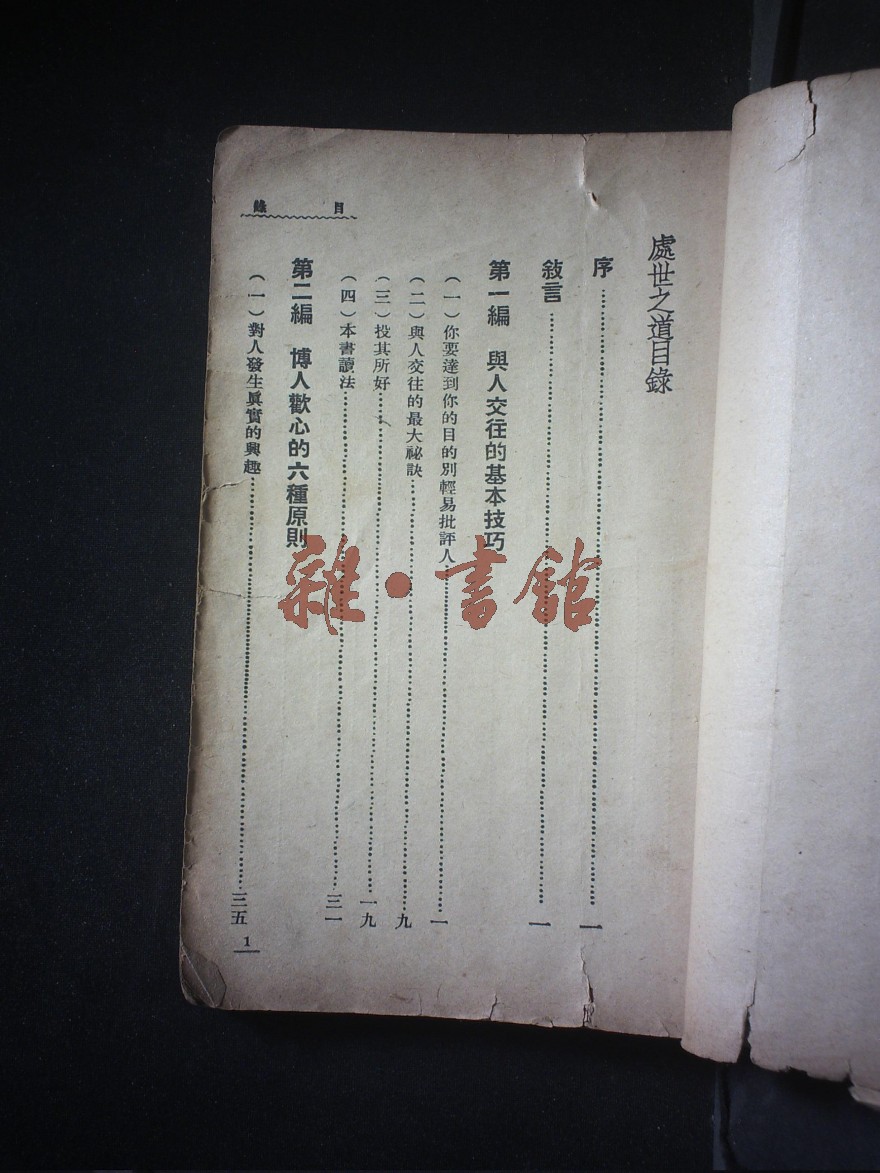 處世之道目錄
序……一
敍言……一
第一編　與人交往的基本技巧
（一）你要達到你的目的別輕易批評人……一
（二）與人交往的最大祕訣……九
（三）投其所好……一九
（四）本書讀法……三一
第二編　博人歡心的六種原則
（一）對人發生眞實的興趣……三五
目錄
1
雜·書館